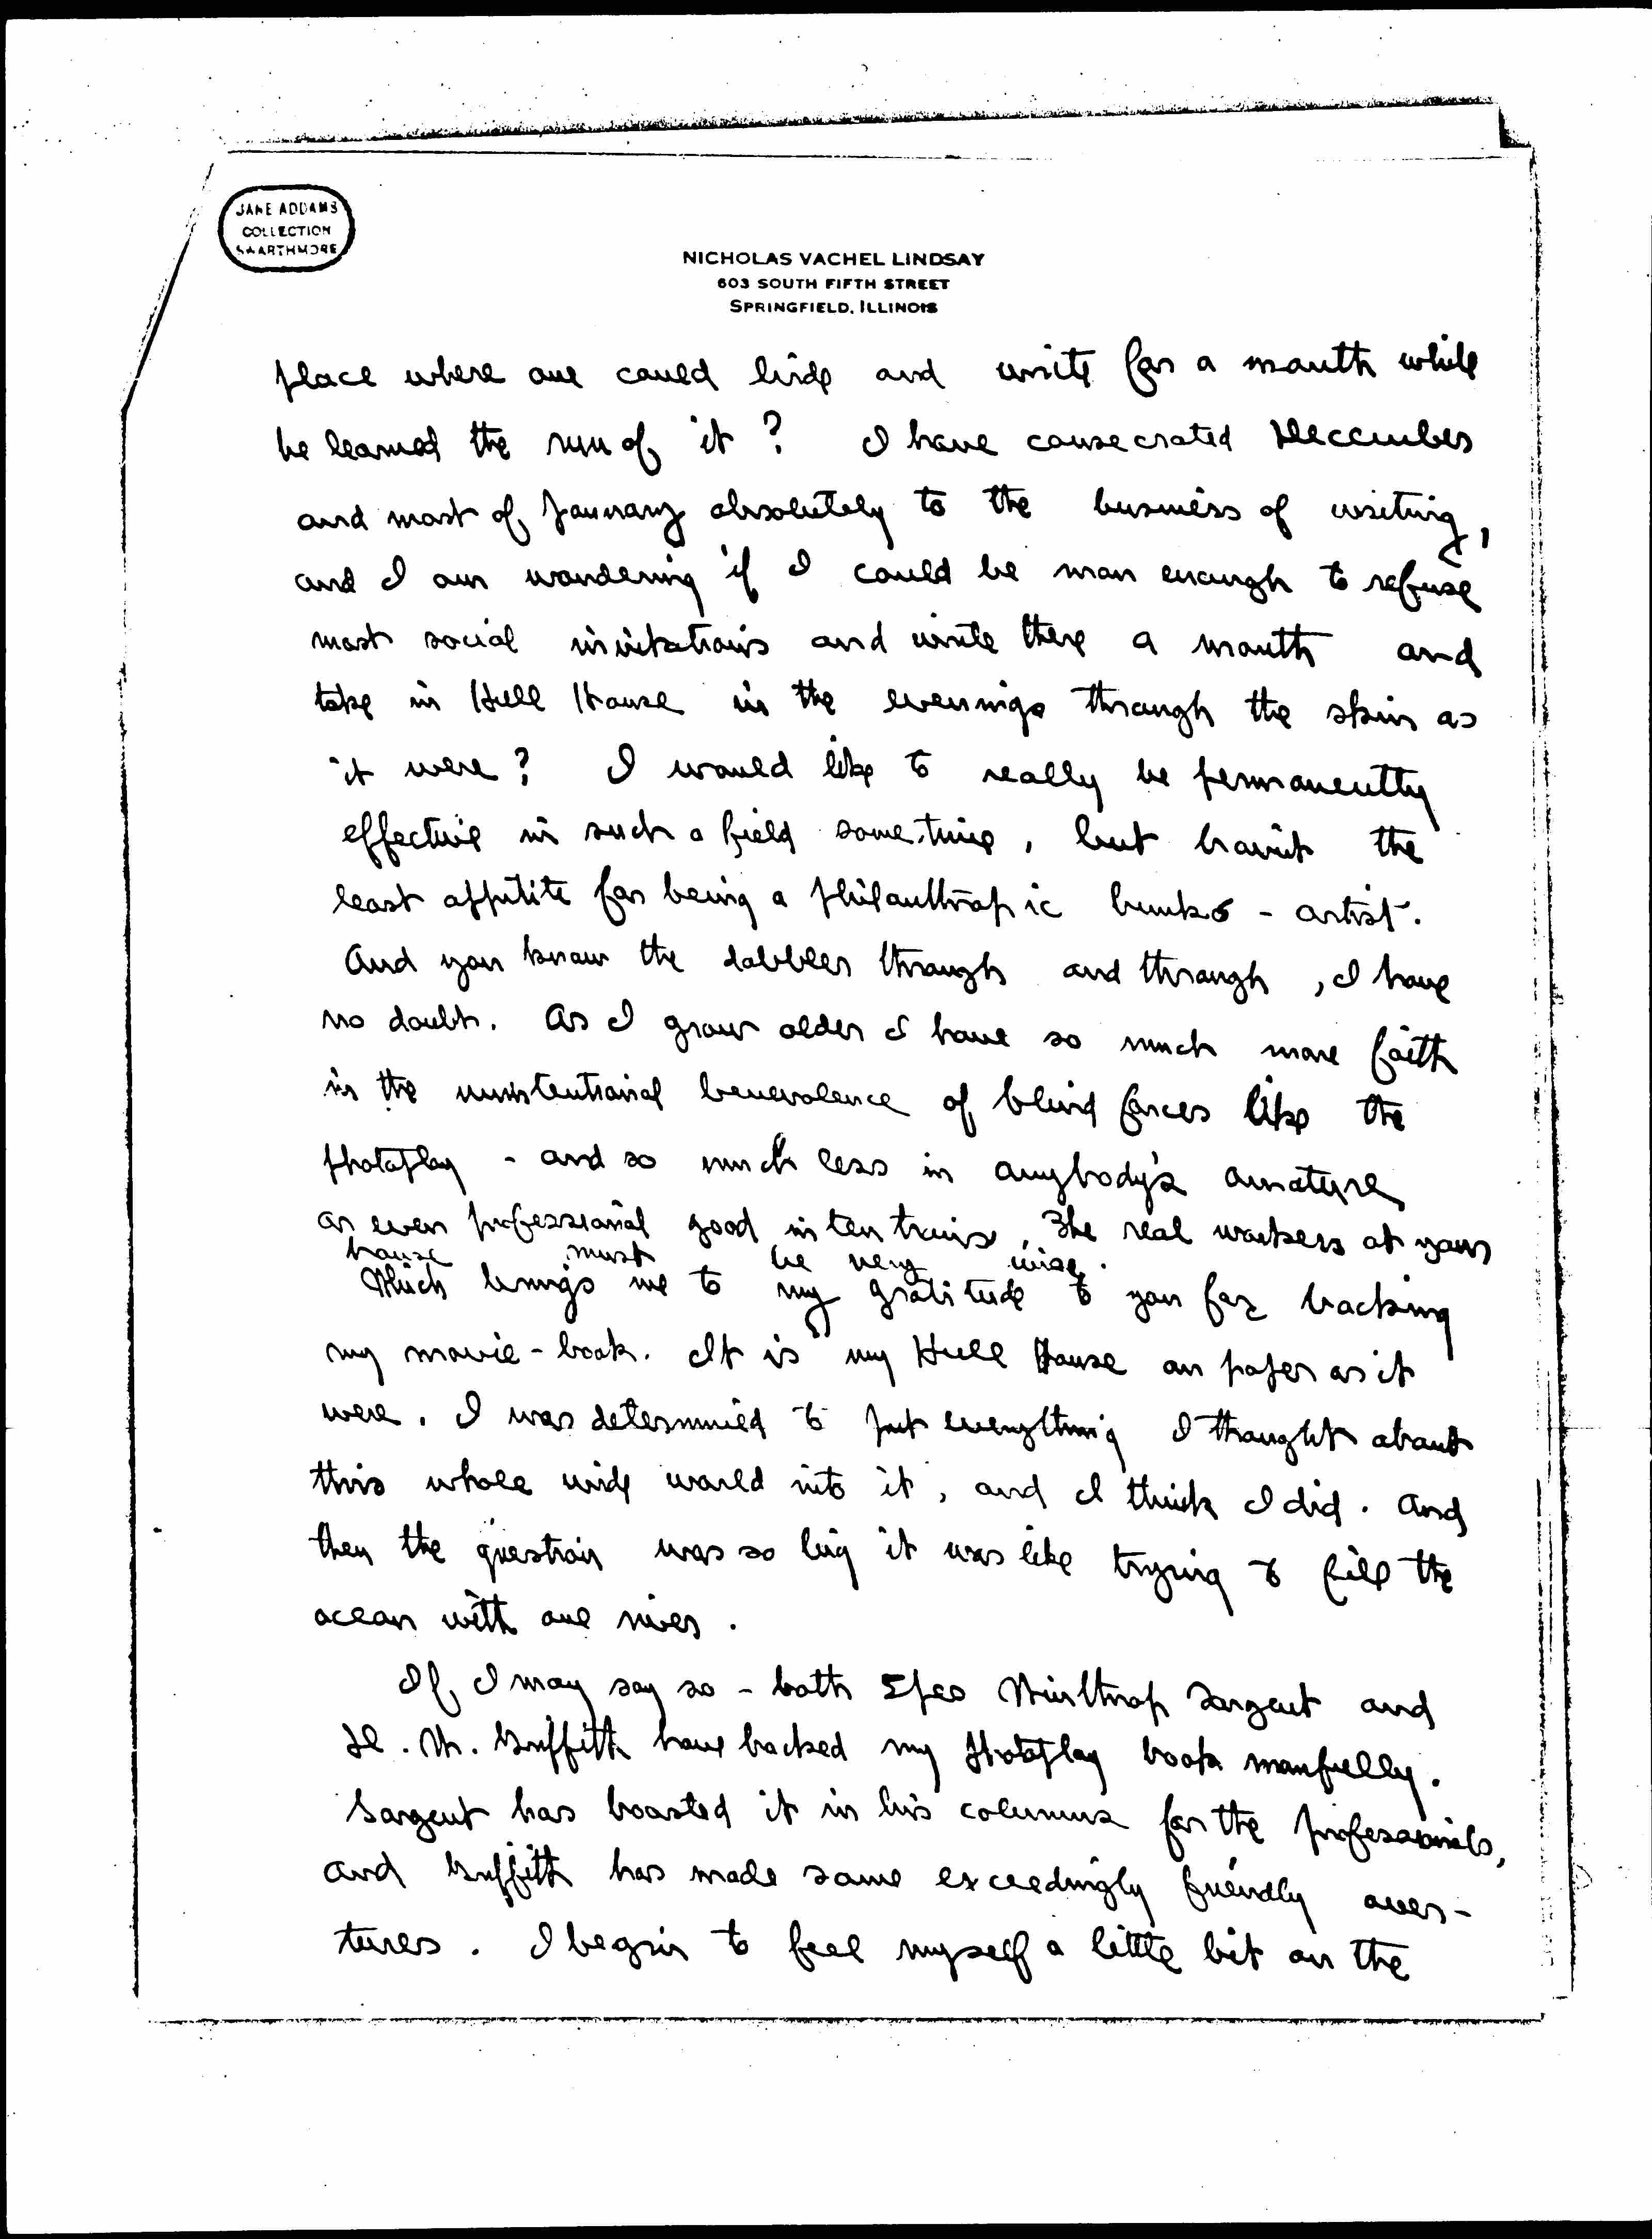 JANE ADDAMS
COLLECTION
SWARTHMORE
NICHOLAS VACHEL LINDSAY
603 SOUTH FIFTH STREET
SPRINGFIELD, ILLINOIS
place where one could hide and write for a month while
he learned the run of it? I have consecrated December
and most of January absolutely to the business of writing,
and I am wondering if I could be man enough to refuse
most social invitations and write there a month and
take in Hull House in the evenings through the skin as
it were? I would like to really be permanently
effective in such a field some time, but havn't the
least appitite for being a philanthropic bunko-artist.
And you know the dabbler through and through, I have
no doubt. As I grow older I have so much more faith
in the unintentional benevolence of blind forces like the
photoplay - and so much less in anybody's amature
or even professional good intentions. The real workers at your
house must be very wise.
Which brings me to my gratitude to you for backing
my movie-book. It is my Hull House on paper as it
were. I was determined to put everything I thought about
this whole wide world into it, and I think I did. And
then the question was so big it was like trying to fill the
ocean with one river.
If I may say so - both Epes Winthrop Sargent and
D. W. Griffith have backed my Photoplay book manfully.
Sargent has boosted it in his columns for the professionals,
and Griffith has made some exceedingly friendly over-
tures. I begin to feel myself a little bit on the